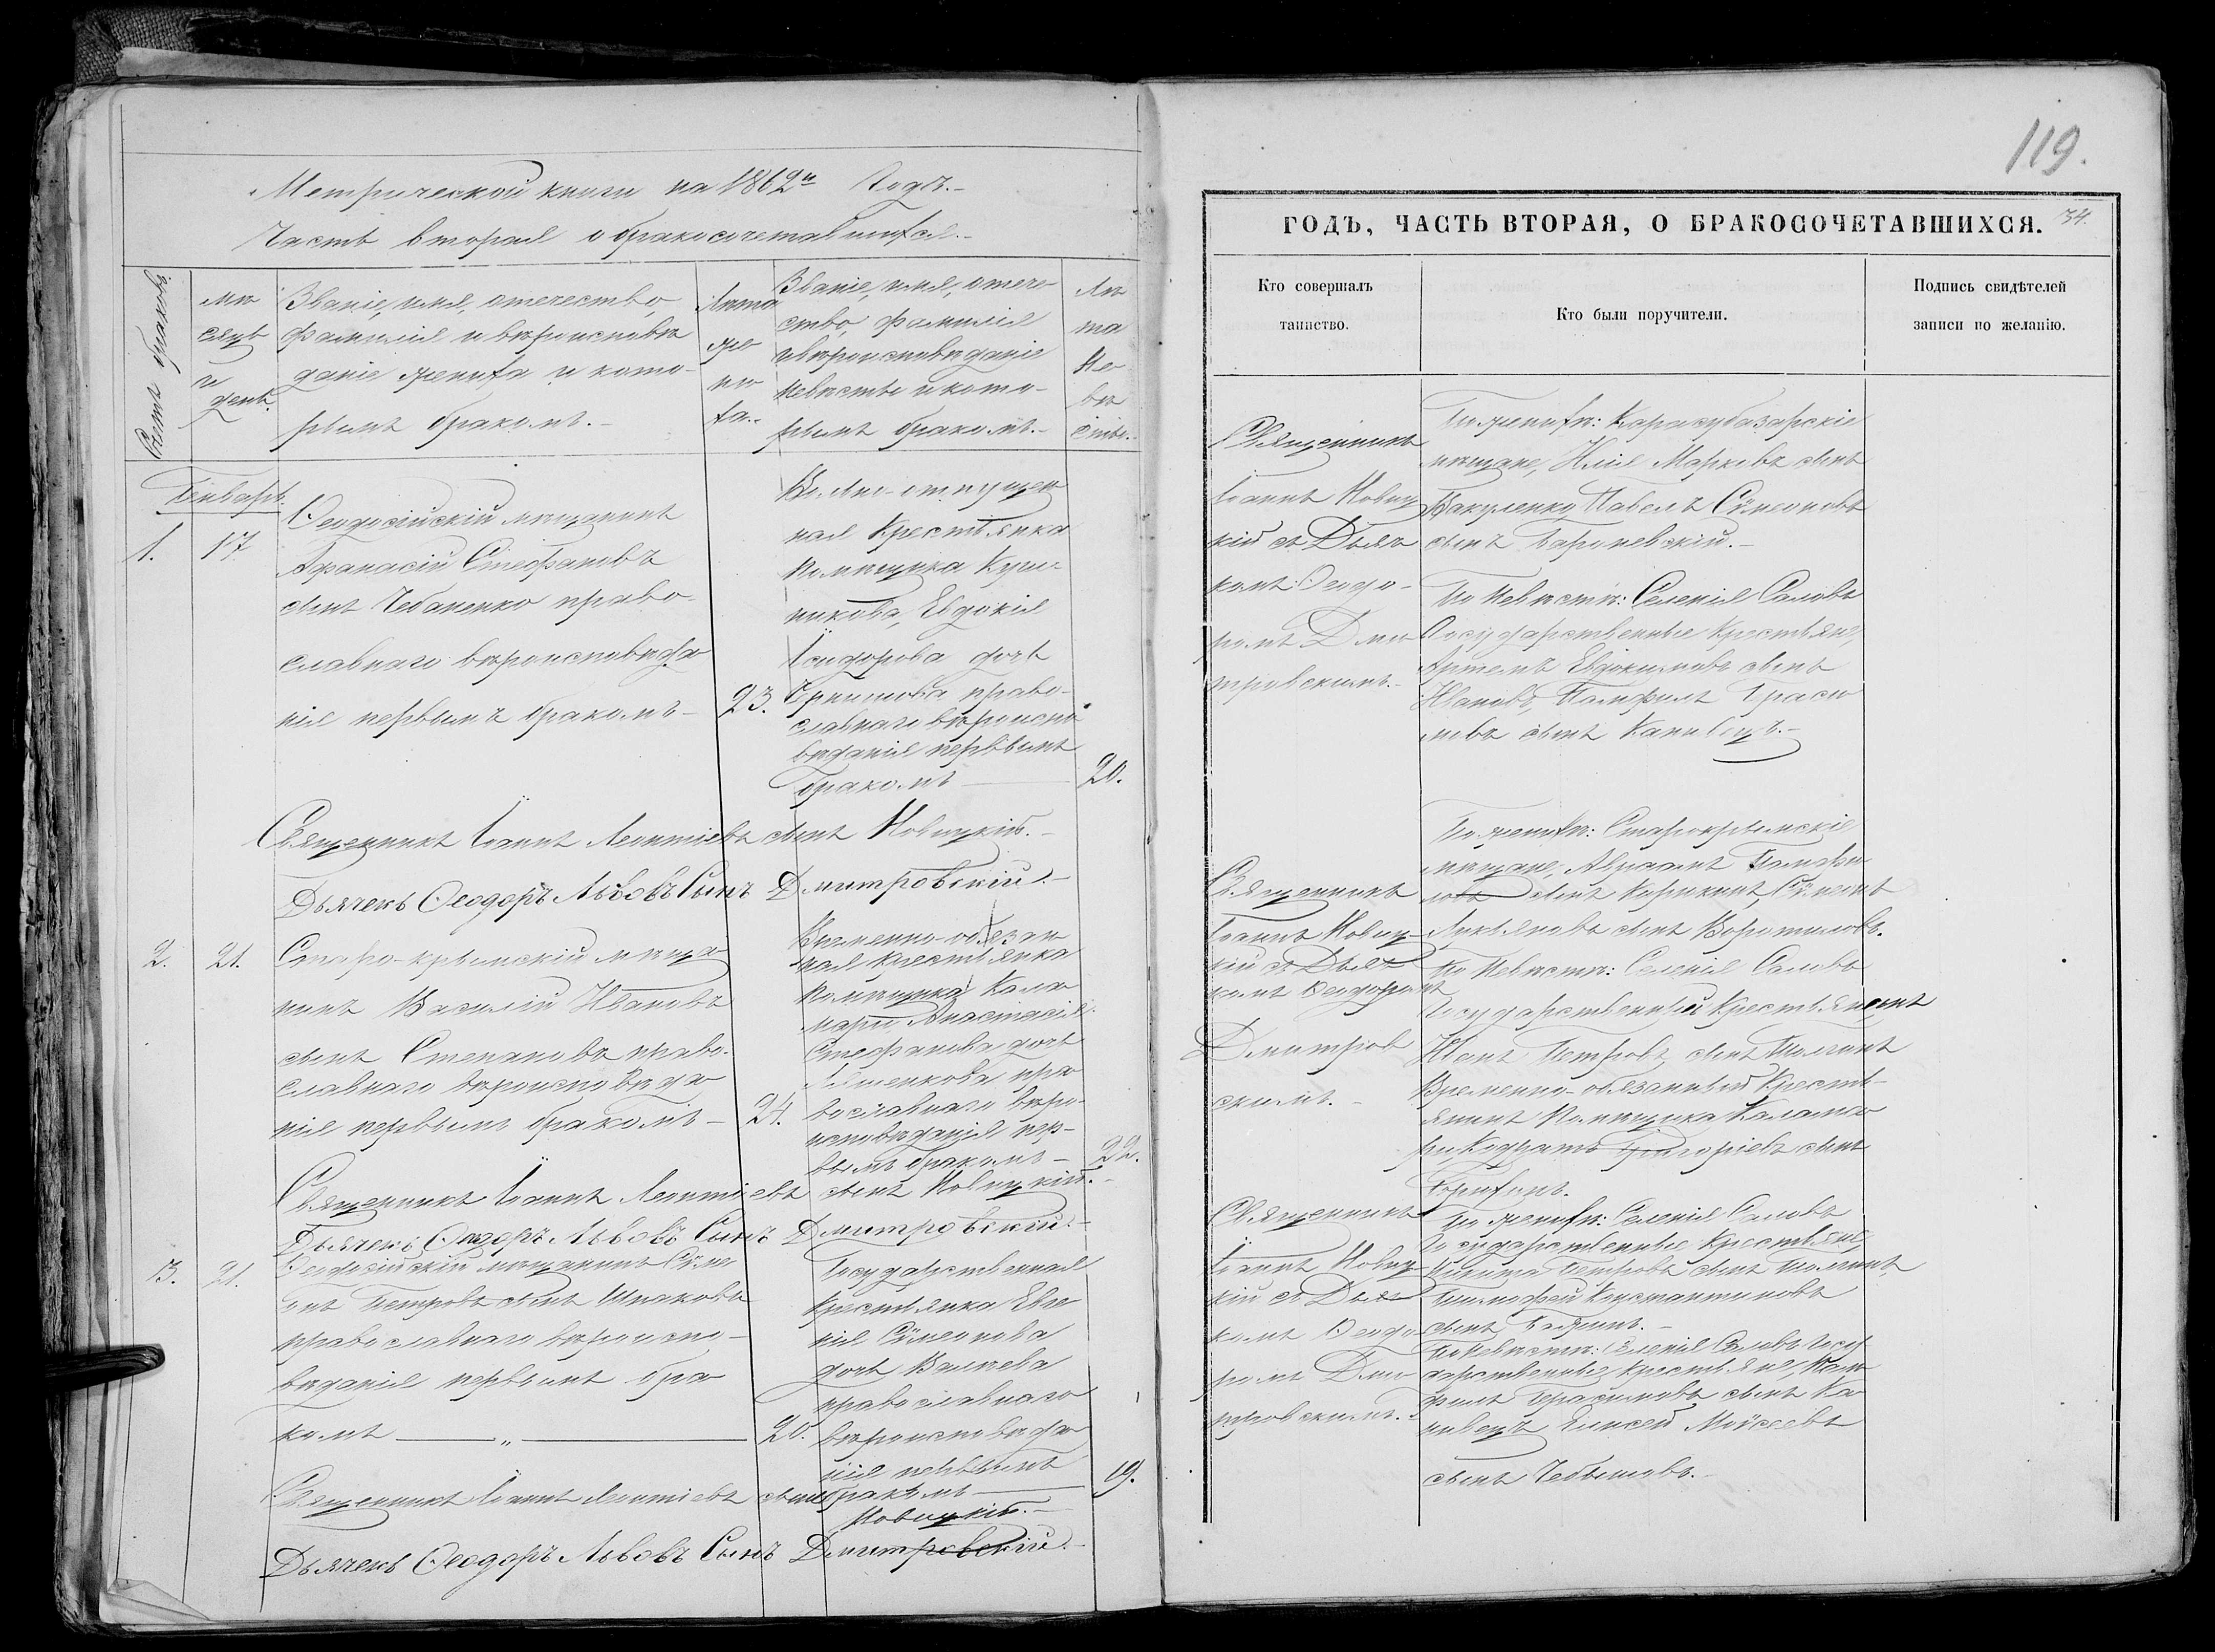 Метрической книги на 1862й Годъ.-
Часть вторая о бракосочетавшихся.-
Счетъ браковъ.
мѣ
сяцъ
и
день.
Званіе, имя, отечество,
фамилія и вѣроисповѣ
даніе жениха и кото-
рымъ бракомъ.-
Лѣта
же
ни
ха.-
Званіе, имя, отече
ство, фамилія
и вѣроисповѣданіе
невѣсты и кото-
рымъ бракомъ.-
Лѣ
та
Не
вѣ
сты.-
Генварь.
1.
17.
Ѳеодосійскій мѣщанинъ
Афанасій Стефановъ
сынъ Чебаненко право-
славнаго вѣроисповѣда
нія первымъ бракомъ-
23.
Вольно-отпущен
ная Крестьянка
Помѣщика
Евдокія
Исидорова дочь
право-
славнаго вѣроиспо
вѣданія первымъ
бракомъ
20.
Священникъ Іоаннъ Леонтіевъ сынъ Новицкій.-
Дьячекъ Ѳеодоръ Львовъ Сынъ Дмитровскій.-
2.
21.
Старо-крымскій мѣща
нинъ Василій Ивановъ
сынъ Степановъ право-
славнаго вѣроисповѣда
нія первымъ бракомъ-
24.
Временно-обязан
ная крестьянка
помѣщика Кала
мари Анастасія
Стефанова дочь
Ляшенкова пра
вославнаго вѣро-
исповѣданія пер-
вымъ бракомъ-
22.
Священникъ Іоаннъ Леонтіевъ сынъ Новицкій.-
Дьячекъ Ѳеодоръ Львовъ Сынъ Дмитровскій.-
3.
21.
Ѳеодосійскій мѣщанинъ Сѵме
онъ Петровъ сынъ Шпаковъ
православнаго вѣроиспо-
вѣданія первымъ бра
комъ „
20.
Государственная
Крестьянка Евге
нія Сѵмеонова
дочь
православнаго
вѣроисповѣда
нія первымъ
бракомъ
19.
Священникъ Іоаннъ Леонтіевъ сынъ
Новицкій.-
Дьячекъ Ѳеодоръ Львовъ Сынъ Дмитровскій.-
119.
ГОДЪ, ЧАСТЬ ВТОРАЯ, О БРАКОСОЧЕТАВШИХСЯ.
34.
Кто совершалъ
таинство.
Кто были поручители.
Подпись свидѣтелей
записи по желанію.
Священникъ
Іоаннъ Новиц
кій съ Дьяч
комъ Ѳеодо-
ромъ Дми
тровскимъ.-
По женихѣ: Карасубазарскіе
мѣщане, Илія Марковъ сынъ
Вакуленко Павелъ Сѵмеоновъ
сынъ Барановскій.-
По Невѣстѣ: Селенія Саловъ
Государственные Крестьяне,
Артемъ Евдокимовъ сынъ
Ивановъ, Памфилъ Гераси
мовъ сынъ Канивецъ.-
Священникъ
Іоаннъ Новиц-
кій съ Дьяч
комъ Ѳеодоромъ
Дмитров
скимъ.-
По женихѣ: Старокрымскіе
мѣщане, Авраамъ Памфи
ловъ сынъ Сѵмеонъ
Лукьяновъ сынъ Воротиловъ.
По Невѣстѣ: Селенія Саловъ
Государственный Крестьянинъ
Иванъ Петровъ сынъ
Временно-обязанный Кресть-
янинъ Помѣщика Калама
ри Кодратъ Григоріевъ сынъ
Священникъ
Іоаннъ Новиц-
кій съ Дьяч
комъ Ѳеодо-
ромъ Дми
тровскимъ.-
По женихѣ: Селенія Саловъ
Государственные Крестьяне,
Никита Петровъ сынъ
Тимофей Константиновъ
сынъ
По Невѣстѣ: Селенія Саловъ Госу
дарственные крестьяне, Пам
филъ Герасимовъ сынъ Ка
нивецъ Елисей Моѵсеевъ
сынъ Чебышовъ.-